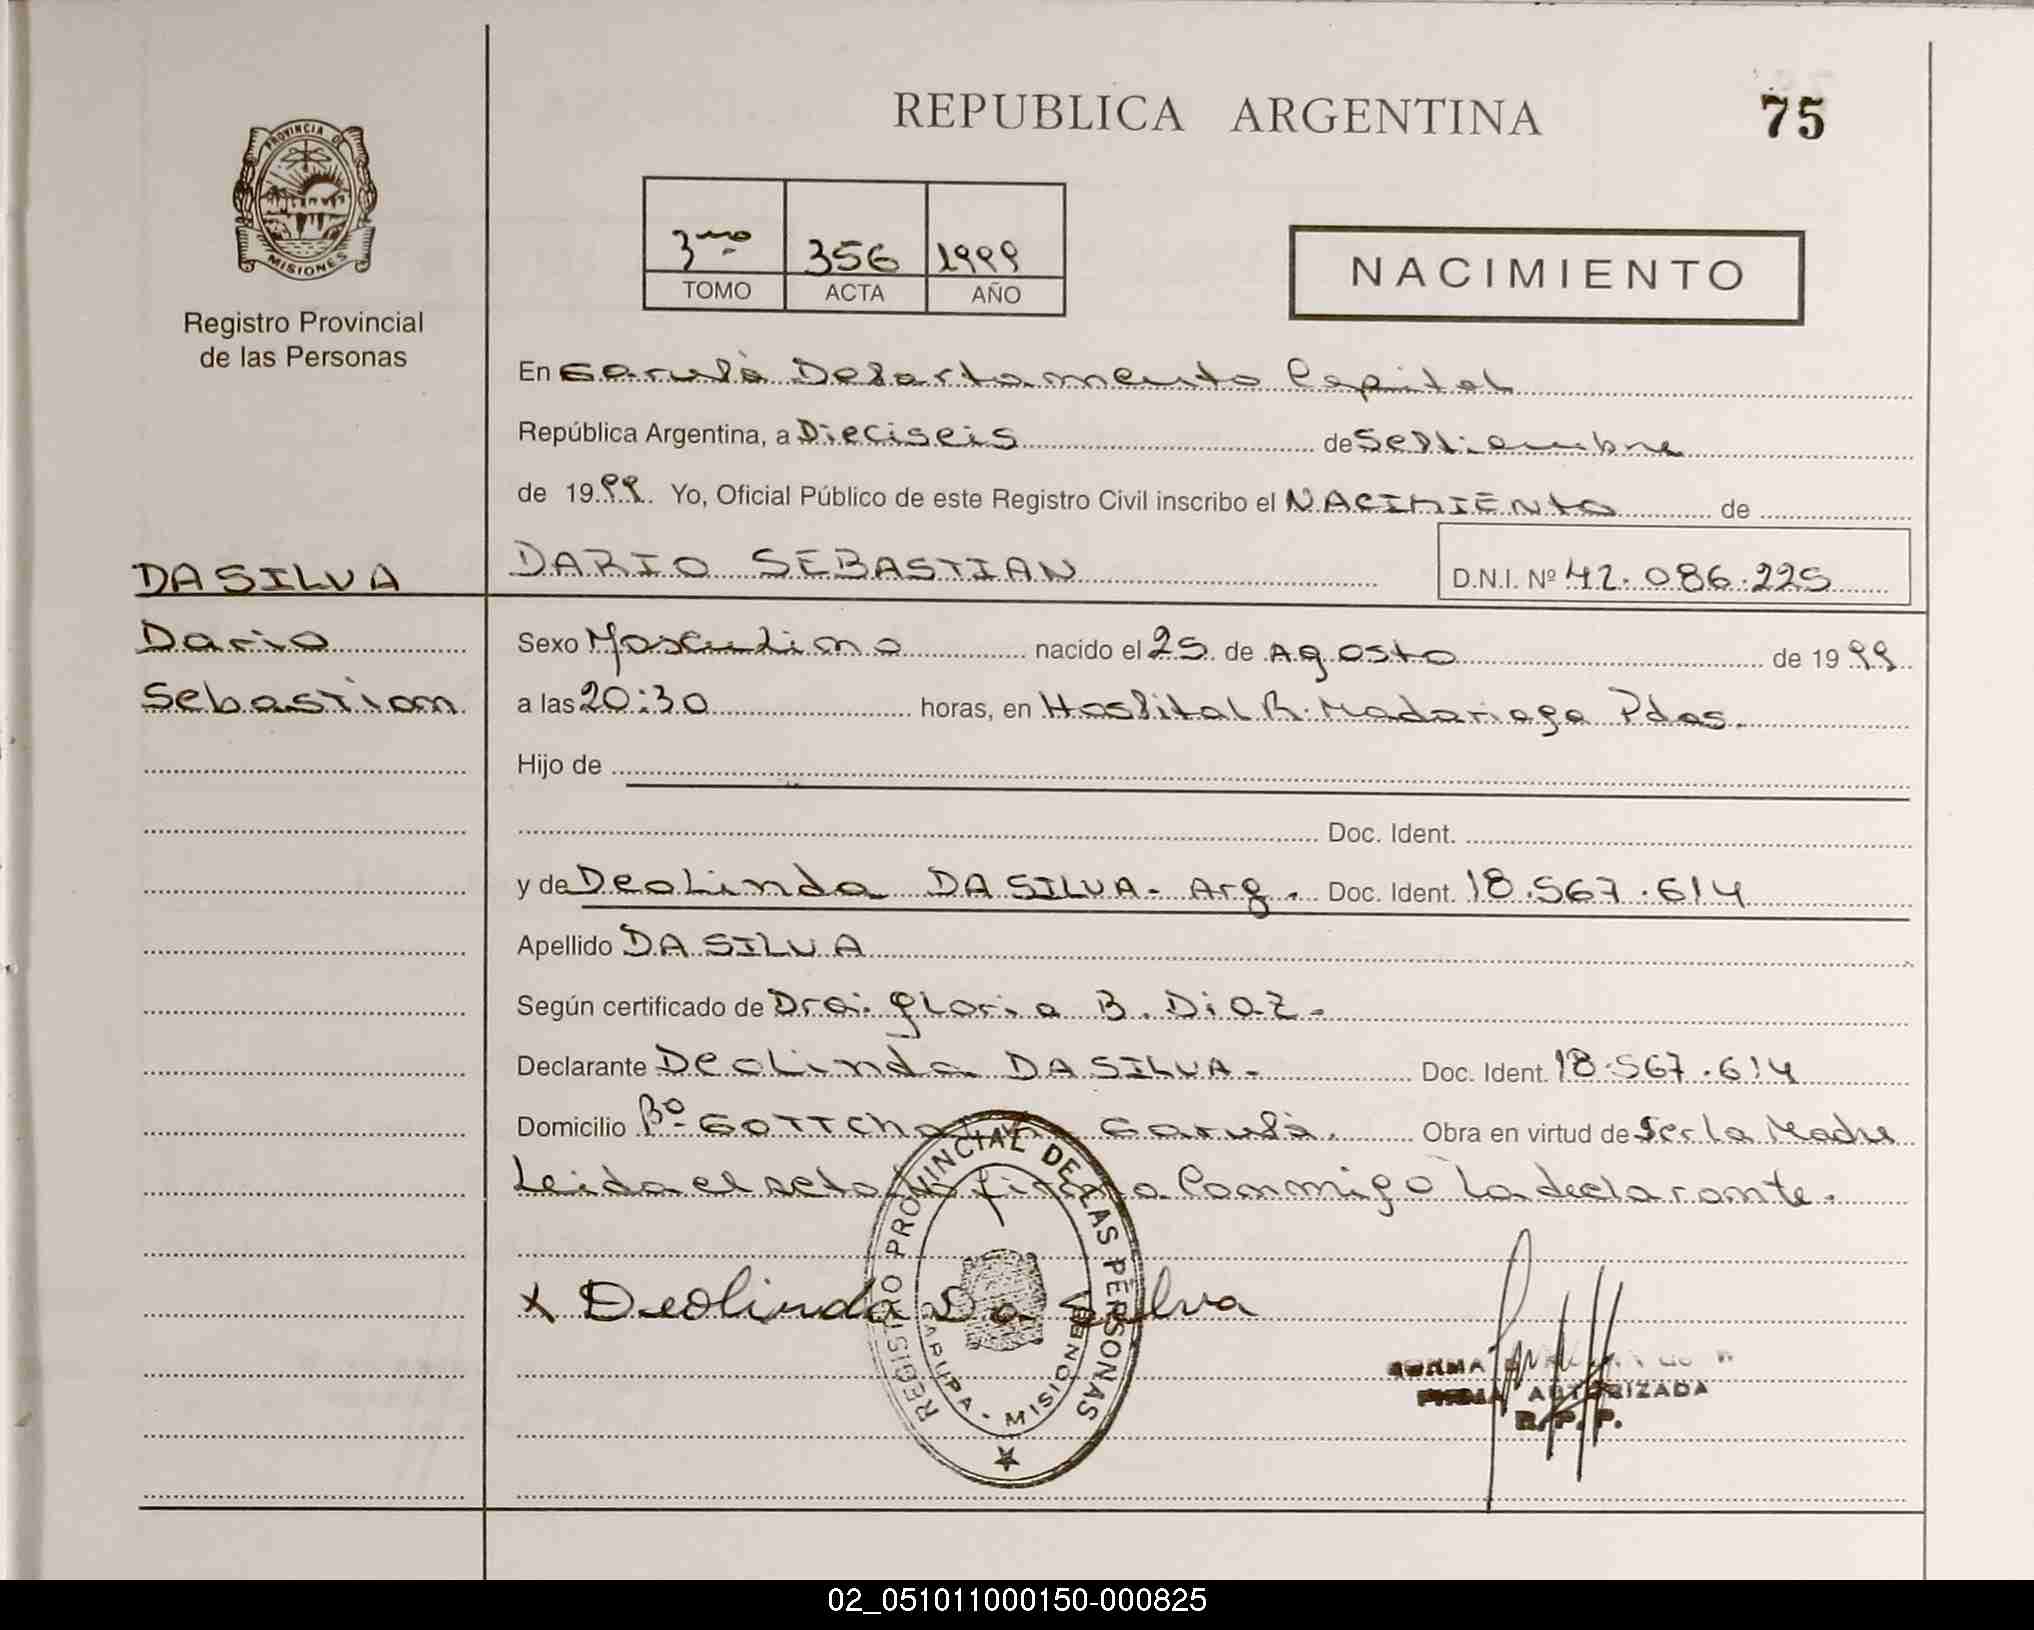 REPUBLICA ARGENTINA
75
PROVINCIA DE
MISIONES
Registro Provincial
de las Personas
3ro 356 1999
TOMO ACTA AÑO
NACIMIENTO
En Garupá Departamento Capital
República Argentina, a Dieciseis de Septiembre
de 1999. Yo, Oficial Público de este Registro Civil inscribo el NACIMIENTO de
DA SILVA
DARIO SEBASTIAN
D.N.I. Nº 42.086.225
Dario
Sebastian
Sexo Masculino nacido el 25 de Agosto de 1999
a las 20:30 horas, en Hospital R. Madariaga Pdas.
Hijo de
Doc. Ident.
y de Deolinda DA SILVA - Arg. Doc. Ident. 18.567.614
Apellido DA SILVA
Según certificado de Dra: Gloria B. Diaz.
Declarante Deolinda DA SILVA. Doc. Ident. 18.567.614
Domicilio Bº Garupá. Obra en virtud de ser la Madre
Leida el acta firma Conmigo la declarante.
x Deolinda Da Silva
REGISTRO PROVINCIAL DE LAS PERSONAS
GARUPA - MISIONES
NORMA
FIRMA AUTORIZADA
R. P. P.
02_051011000150-000825